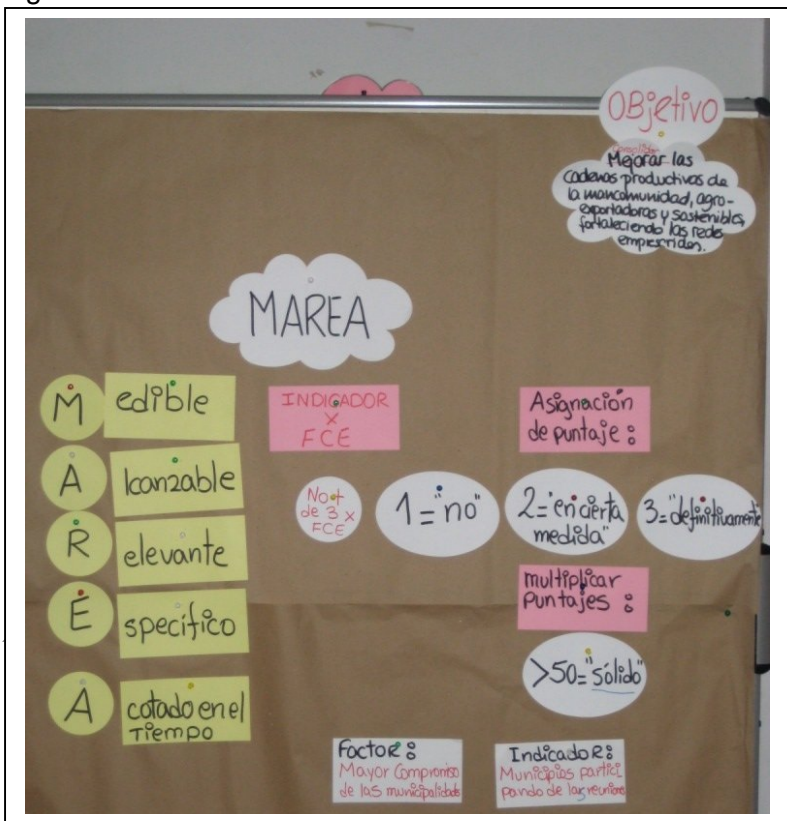 OBjetivo
Complido
Mejorar las
cadenas productivas de
la mancomunidad, agro-
exportadoras y sostenibles,
fortaleciendo las redes
MAREA
M edible
A lcanzable
R elevante
E specífico
A cotado en el
Tiempo
INDICADOR
X
FCE
No +
de 3 x
FCE
Asignación
de puntaje:
1="no"
2="en cierta
medida"
3="definitivamente
multiplicar
Puntajes:
>50="sólido"
Factor:
Mayor Compromiso
de las municipalidades
Indicador:
Municipios partici
pando de las reuniones